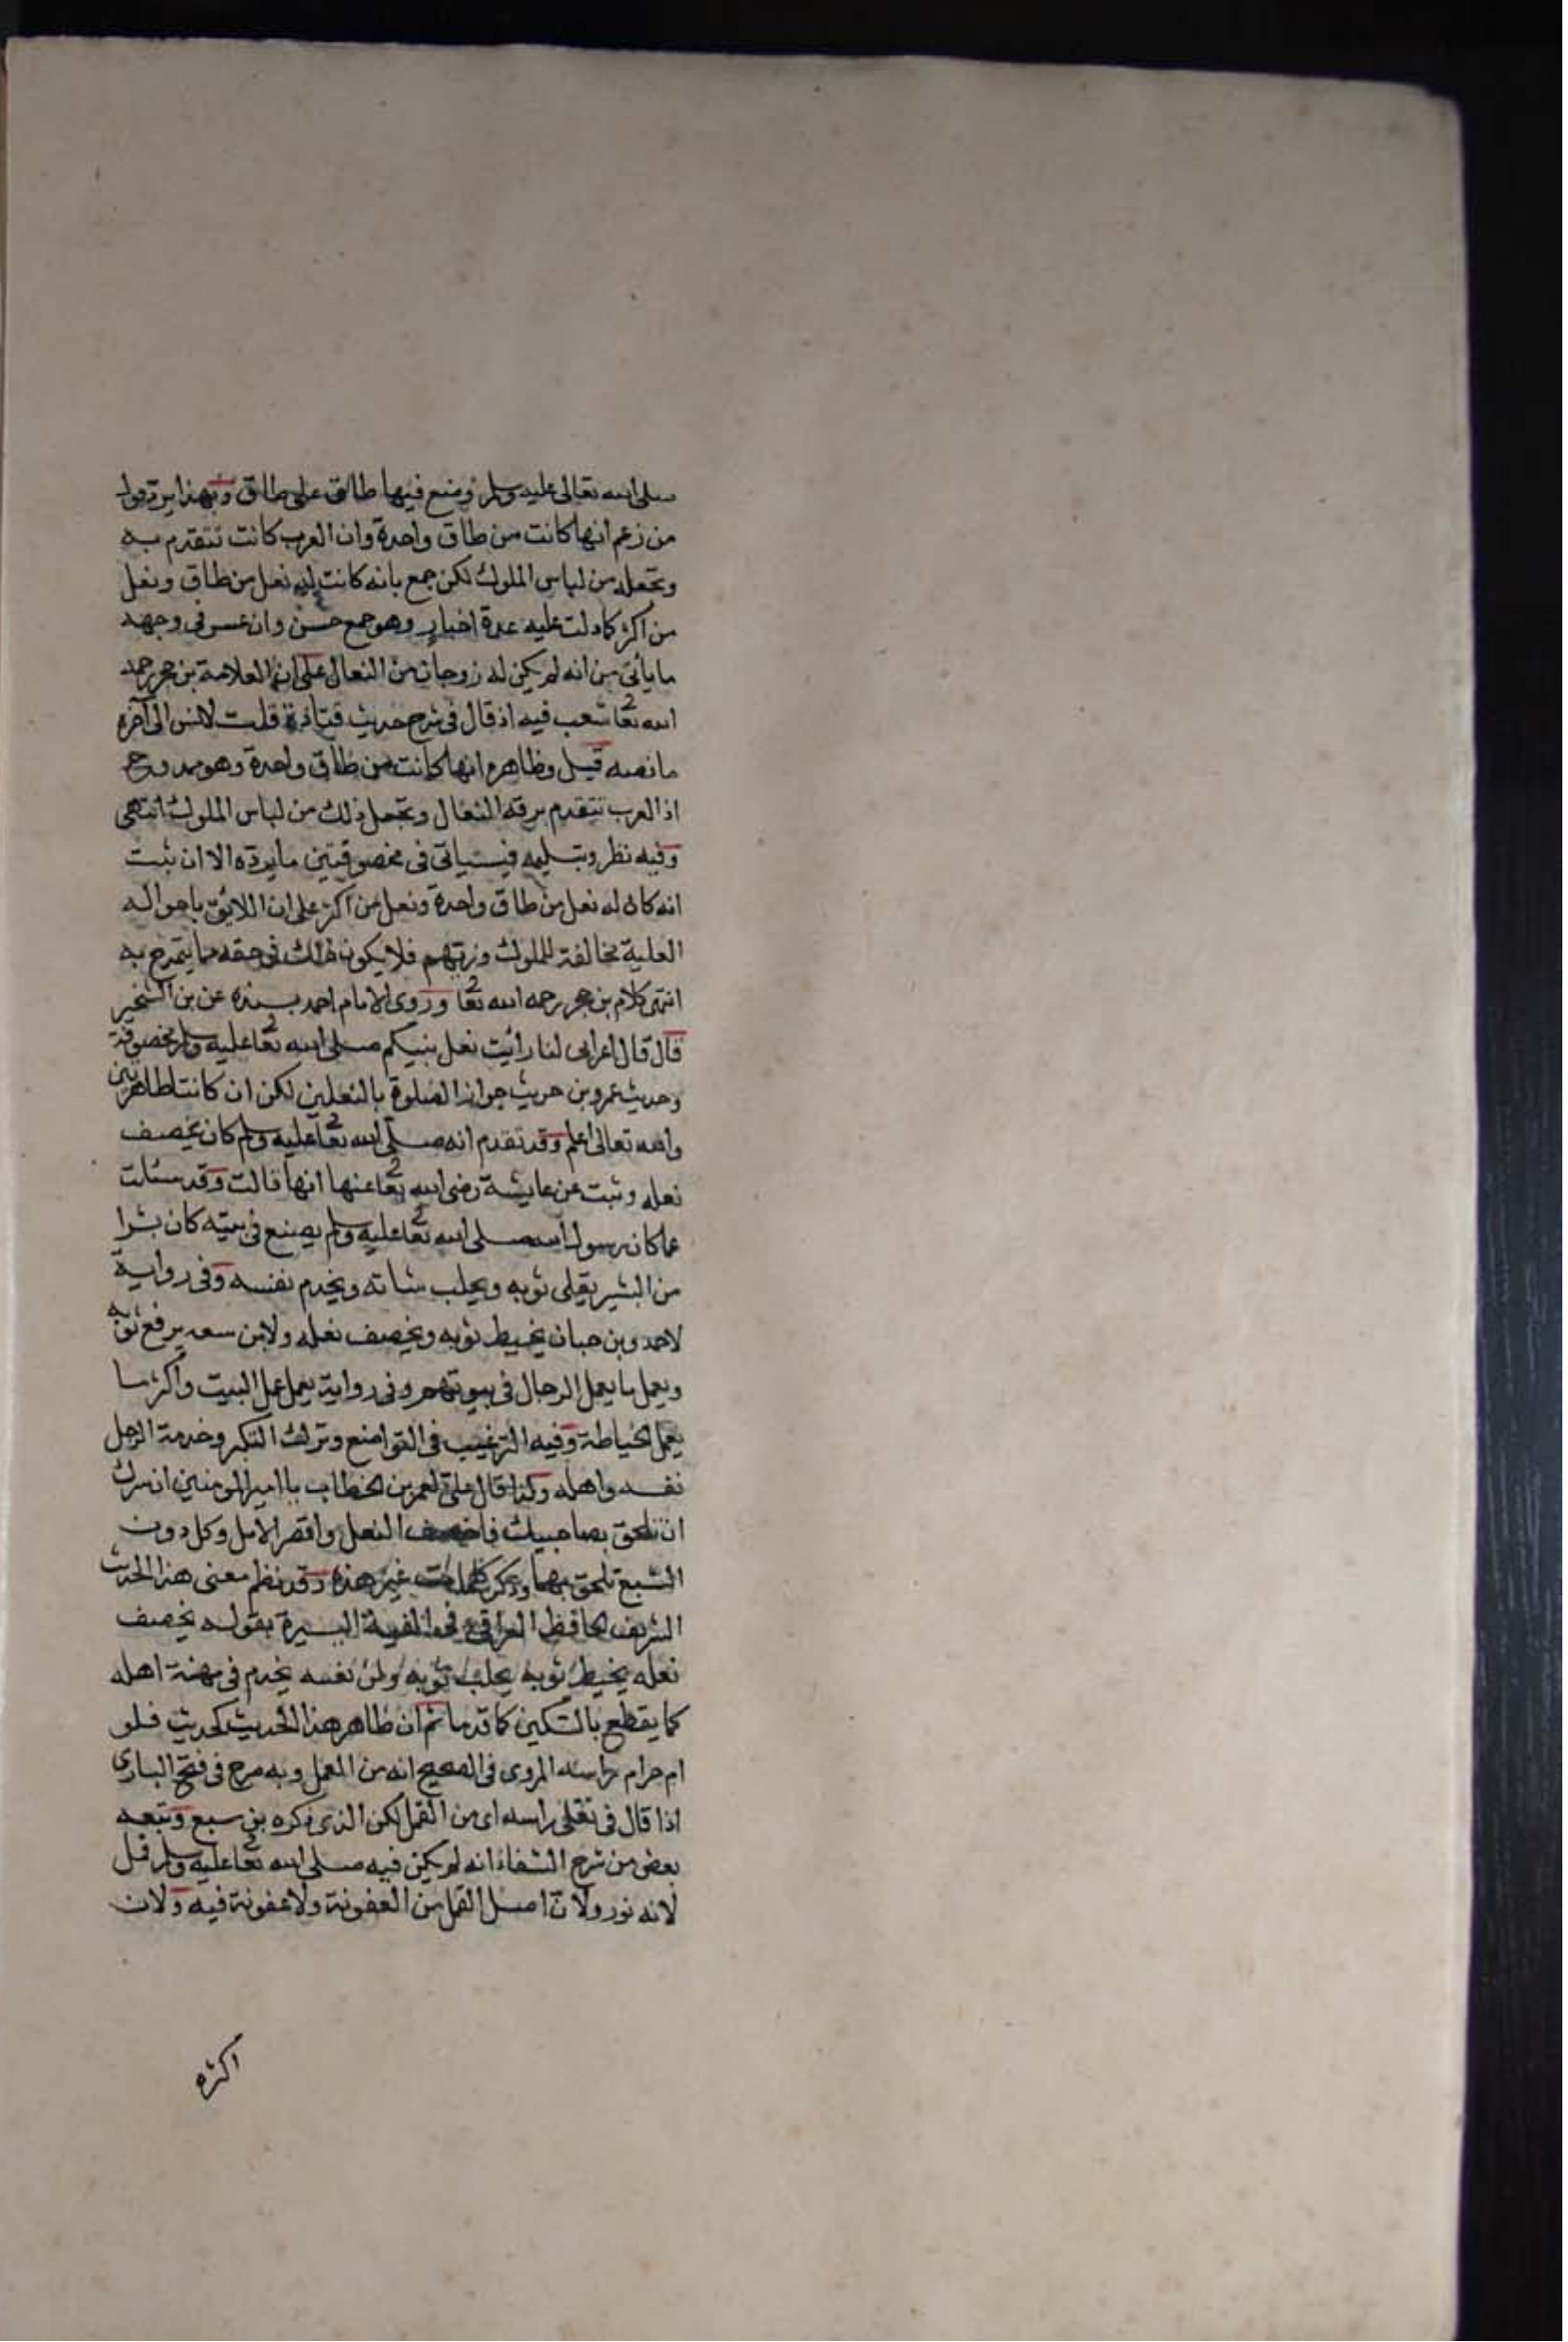 صلى الله تعالى عليه وسلم وضع فيها طاق على طاق وبهذا يرد قول
من زعم انها كانت من طاق واحدة وان العرب كانت تتقدم به
وتجعله من لباس الملوك لكن جمع بانه كانت له نعل من طاق ونعل
من اكثر كما دلت عليه عدة اخبار وهو جمع حسن وان عسر في وجهه
ما يأتي من انه لم يكن له زوجان من النعال على ان العلامة بن حجر رحمه
الله تعا شعب فيه اذ قال في شرح حديث قتادة قلت لانس الى آخره
ما نصه قيل وظاهره انها كانت من طاق واحدة وهو ممدوح
اذ العرب تتقدم برقة النعال وتجعل ذلك من لباس الملوك انتهى
وفيه نظر وبتسليمه فسيأتي في مخصوفتين ما يرده الا ان ثبت
انه كان له نعل من طاق واحدة ونعل من اكثر على ان اللائق باحواله
العلية مخالفة للملوك وزيهم فلا يكون ذلك في حقه مما يتمدح به
انتهى كلام بن حجر رحمه الله تعا وروى الامام احمد بسنده عن بن الشخير
قال قال اعرابي لنا رأيت نعل نبيكم صلى الله تعا عليه وسلم مخصوفة
وحديث عمرو بن حريث جواز الصلوة بالنعلين لكن ان كانتا طاهرتين
والله تعالى اعلم وقد تقدم انه صلى الله تعا عليه وسلم كان يخصف
نعله وثبت عن عايشة رضى الله تعا عنها انها قالت وقد سئلت
عما كان رسول الله صلى الله تعا عليه وسلم يصنع في بيته كان بشرا
من البشر يفلى ثوبه ويحلب شاته ويخدم نفسه وفي رواية
لاحمد وبن حبان يخيط ثوبه ويخصف نعله ولابن سعد يرقع ثوبه
ويعمل ما يعمل الرجال في بيوتهم وفي رواية يعمل عمل البيت واكثر ما
يعمل الخياطة وفيه الترغيب في التواضع وترك التكبر وخدمة الرجل
نفسه واهله وكذا قال على لعمر بن الخطاب يا امير المومنين ان سرك
ان تلحق بصاحبيك فاخصف النعل واقصر الامل وكل دون
الشبع تلحق بهما وذكر كلمات غير هذه وقد نظم معنى هذا الحديث
الشريف الحافظ العراقي في الفية السيرة بقوله يخصف
نعله يخيط ثوبه يحلب ولن نفسه يخدم في مهنة اهله
كما يقطع بالسكين كما قدما ثم ان ظاهر هذا الحديث كحديث فلو
ام حرام راسه المروى في الصحيح انه من القمل وبه صرح في فتح البارى
اذا قال في تفلى راسه اى من القمل لكن الذى ذكره بن سبع وتبعه
بعض من شرح الشفاء انه لم يكن فيه صلى الله تعا عليه وسلم قمل
لانه نور ولان اصل القمل من العفونة ولا عفونة فيه ولان
اكثره